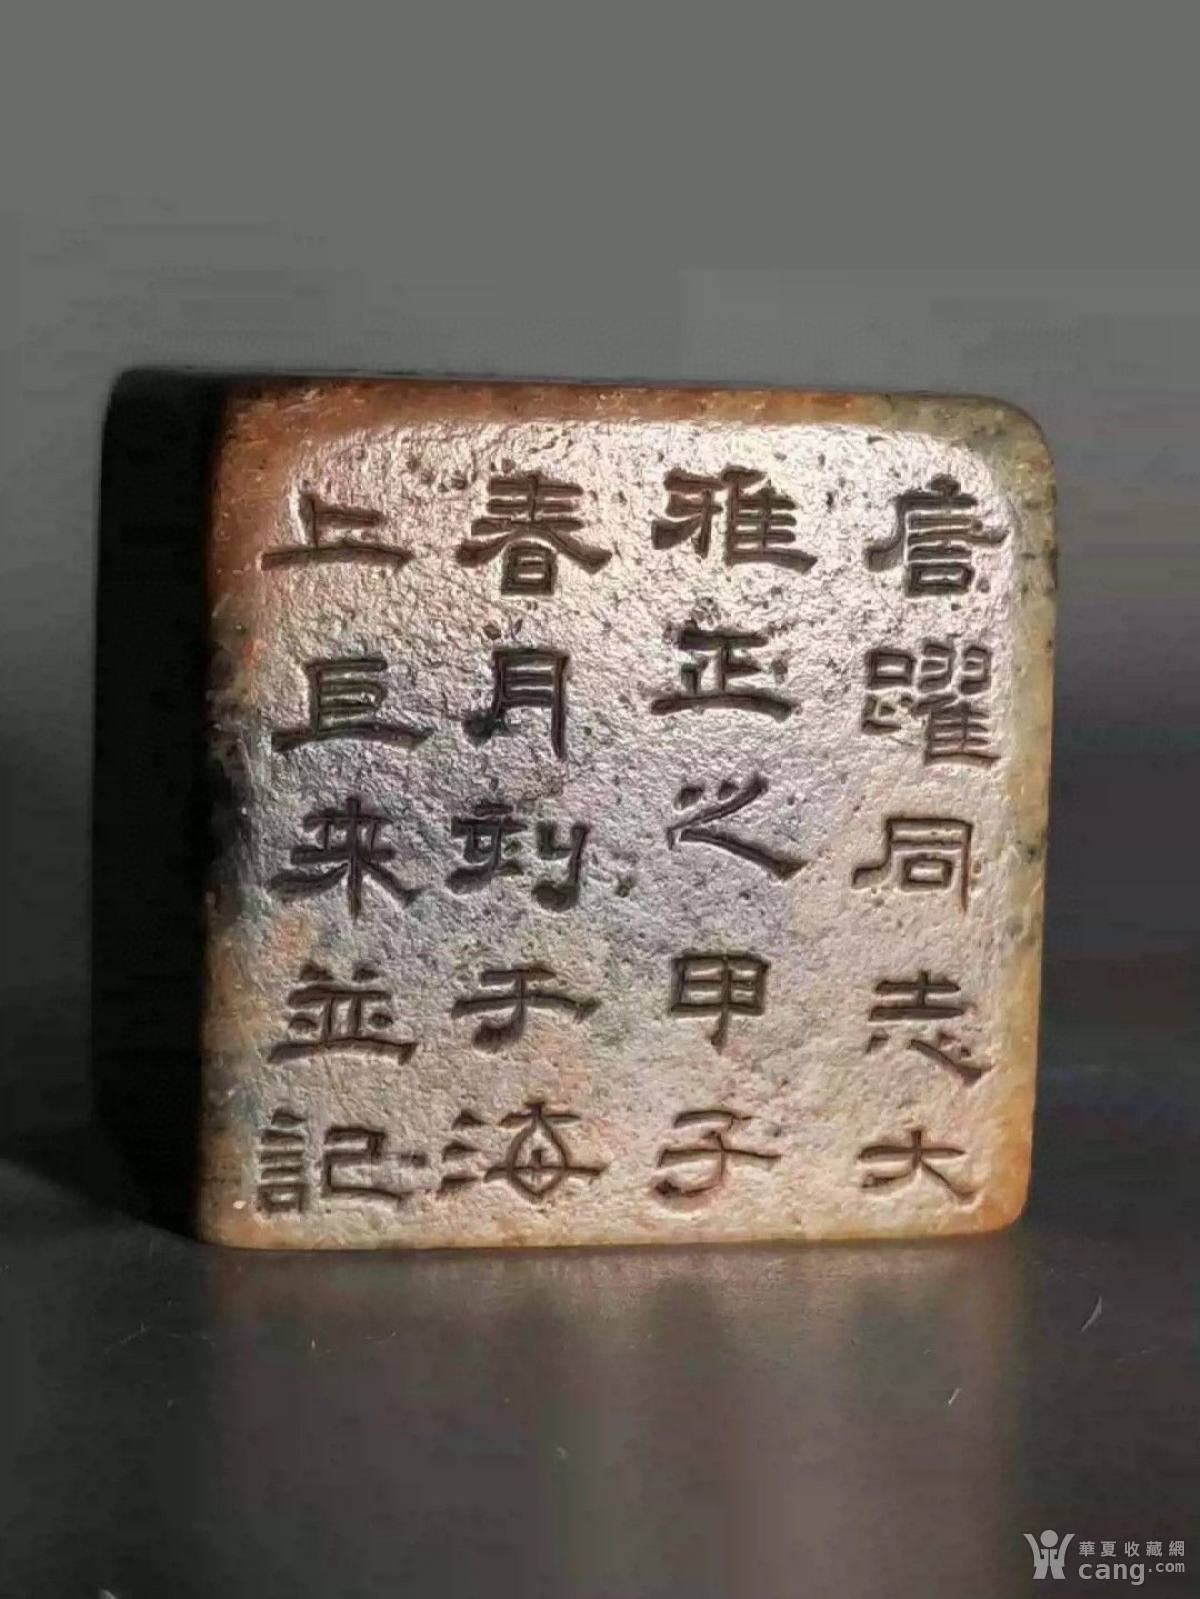 唐躍同志大
雅正之甲子
春月刻于海
上巨来並記
華夏收藏網
cang.com